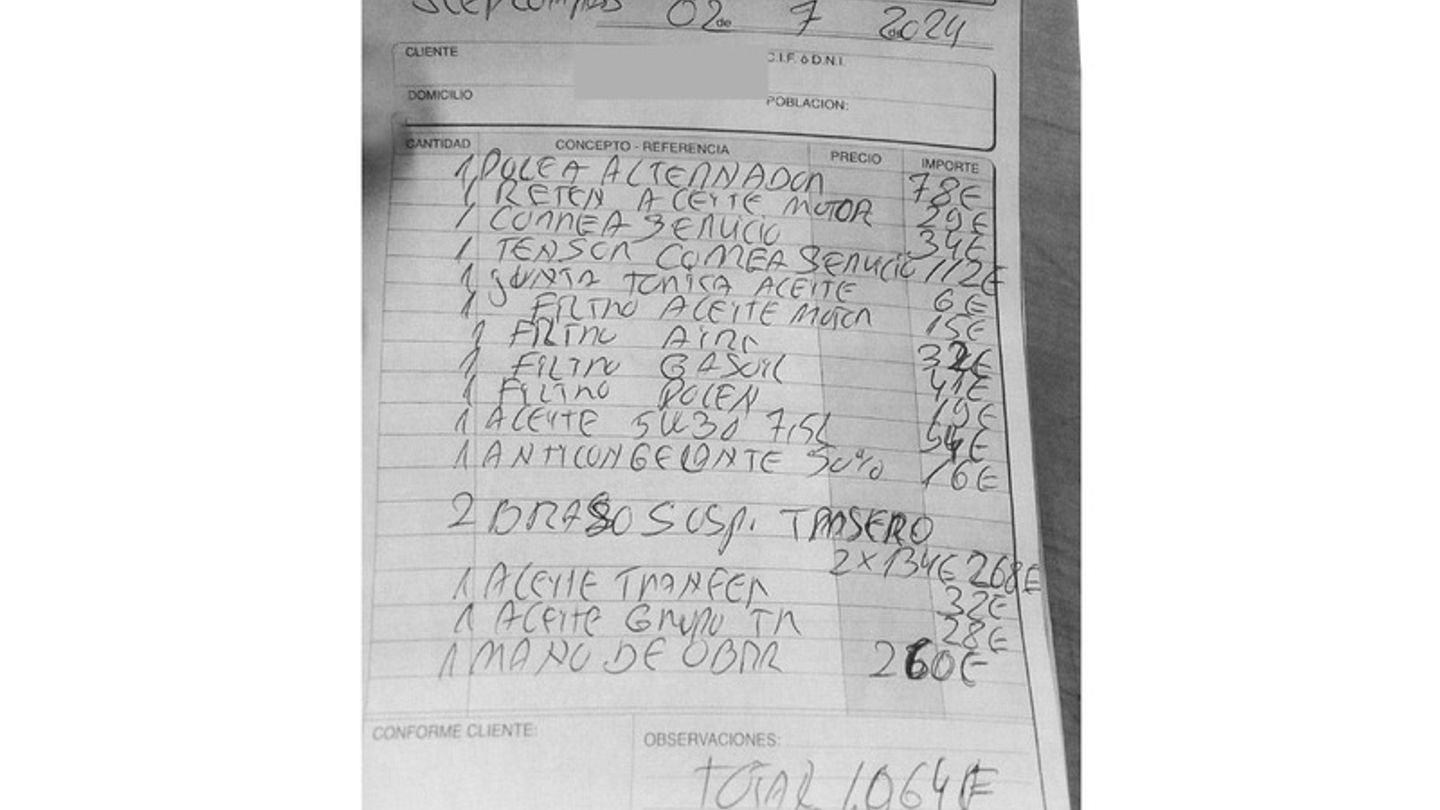 02 de 7 de 2024
CLIENTE C.I.F. ó D.N.I.
DOMICILIO POBLACION:
CANTIDAD CONCEPTO - REFERENCIA PRECIO IMPORTE
1 POLEA ALTERNADOR 78€
1 RETEN ACEITE MOTOR 29€
1 CORREA SERUICIO 34€
1 TENSOR CORREA SERUICIO 112€
1 JUNTA TORICA ACEITE 6€
1 FILTRO ACEITE MOTOR 15€
1 FILTRO AIRE 32€
1 FILTRO GASOIL 41€
1 FILTRO POLEN 19€
1 ACEITE 5W30 7,5L 54€
1 ANTICONGELANTE 50% 16€
2 BRASO SUSP. TRASERO
2x134€ 268€
1 ACEITE TRANFER 32€
1 ACEITE GRUPO TR 28€
1 MANO DE OBAR 260€
CONFORME CLIENTE: OBSERVACIONES:
TOTAR 1.064€